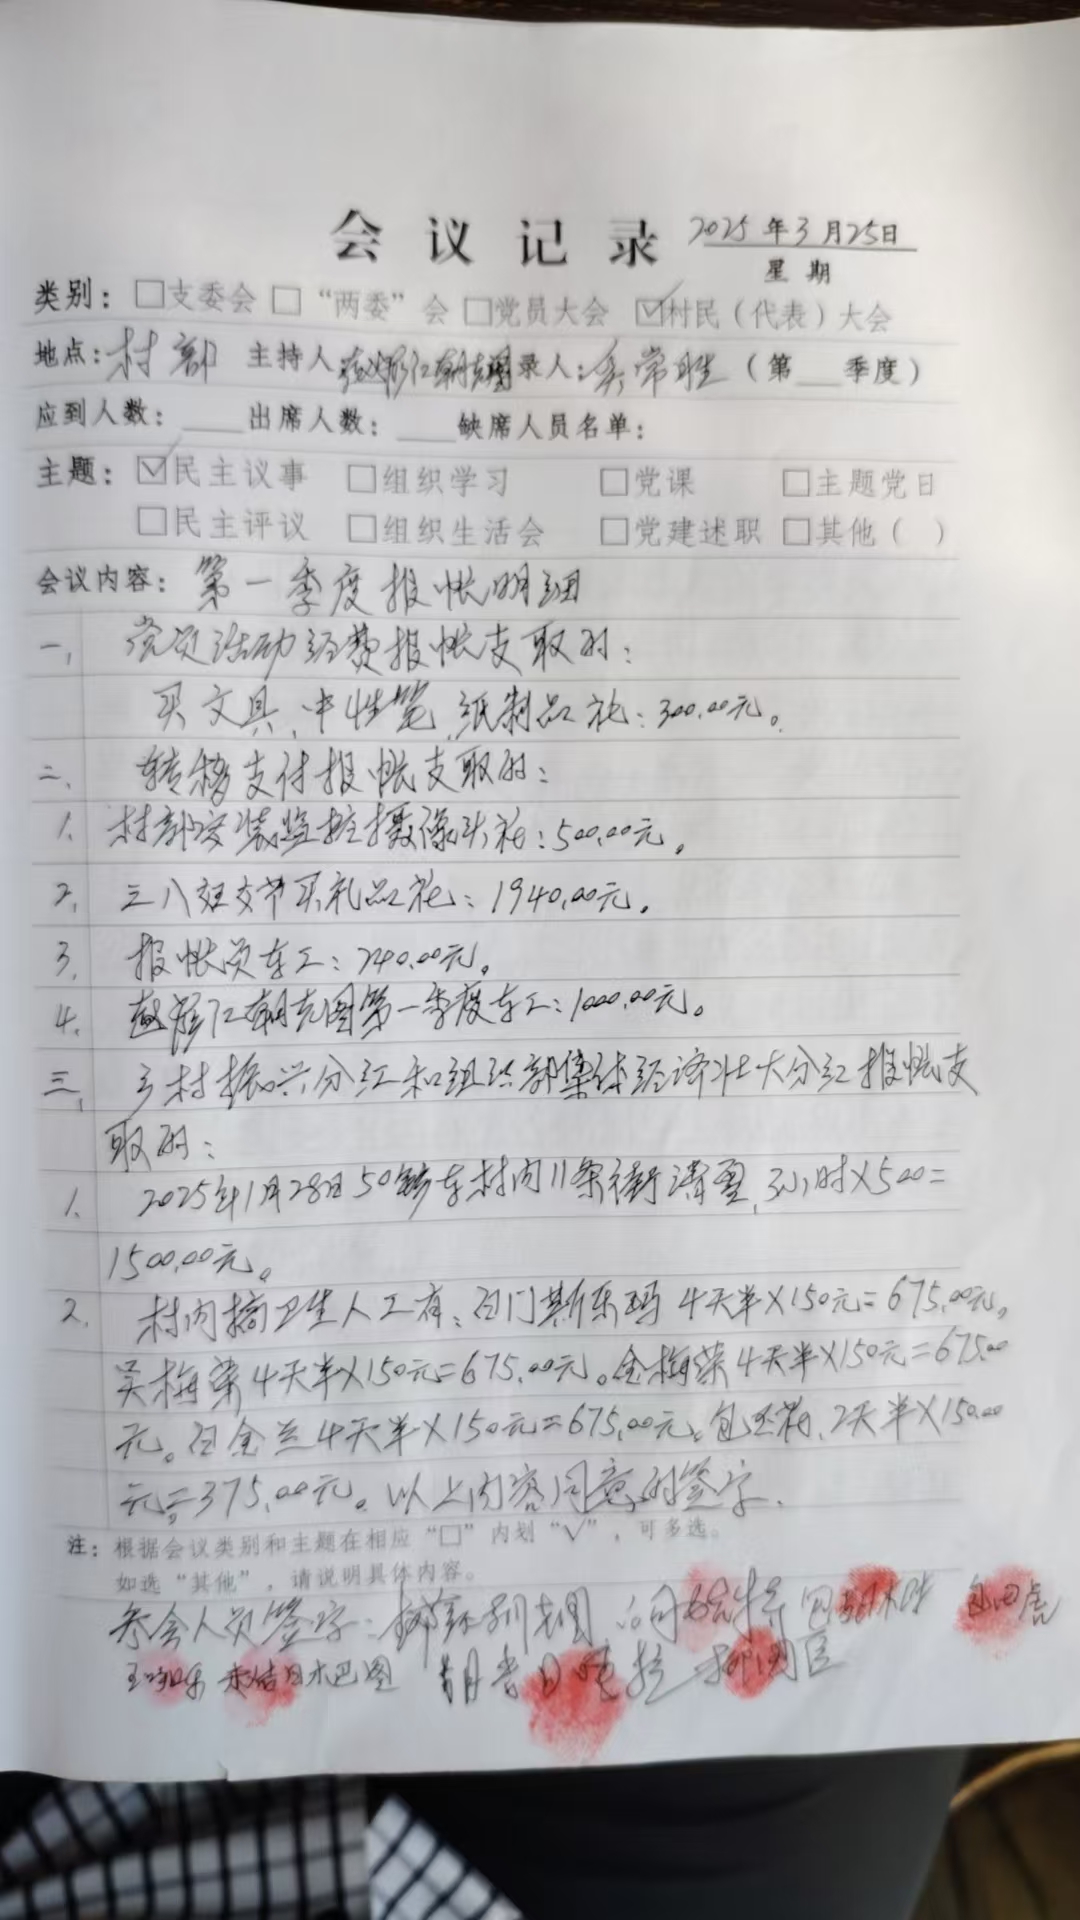 会议记录 2025年3月25日
星期
类别：□支委会 □“两委”会 □党员大会 ☑村民（代表）大会
地点：村部 主持人 朝克图 录人：吴常胜（第__季度）
应到人数：____出席人数：____缺席人员名单：
主题：☑民主议事 □组织学习 □党课 □主题党日
□民主评议 □组织生活会 □党建述职 □其他（ ）
会议内容：第一季度报帐明细
一、党员活动经费报帐支取的：
买文具、中性笔、纸制品花：300.00元。
二、转移支付报帐支取的：
1. 村部安装监控摄像头花：500.00元。
2. 三八妇女节买礼品花：1940.00元。
3. 报帐员车工：240.00元。
4. 朝克图第一季度车工：1000.00元。
三、乡村振兴分红和组织部集体经济壮大分红报帐支
取的：
1. 2025年1月28日50铲车村内11条街清雪，3小时×500=
1500.00元。
2. 村内搞卫生人工有：白门其斯乐玛4天半×150元=675.00元。
吴梅荣4天半×150元=675.00元。金梅荣4天半×150元=675.00
元。白金兰4天半×150元=675.00元。包 花、2天半×150.00
元=375.00元。以上内容同意的签字.
注：根据会议类别和主题在相应“□”内划“√”，可多选。
如选“其他”，请说明具体内容。
参会人员签字：